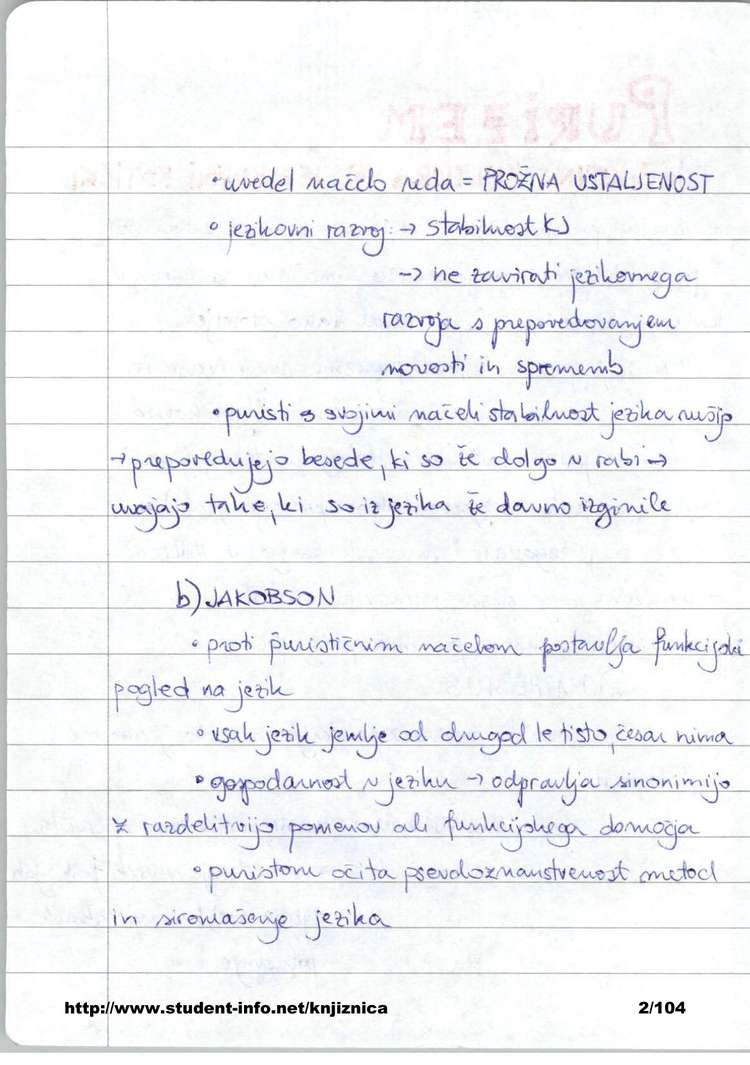 • uvedel načelo reda = PROŽNA USTALJENOST
• jezikovni razvoj: → stabilnost KJ
→ ne zavirati jezikovnega
razvoja s prepovedovanjem
novosti in sprememb
• puristi s svojimi načeli stabilnost jezika rušijo
→ prepovedujejo besede, ki so že dolgo v rabi →
uvajajo take, ki so iz jezika že davno izginile
b) JAKOBSON
• proti purističnim načelom postavlja funkcijski
pogled na jezik
• vsak jezik jemlje od drugod le tisto, česar nima
• gospodarnost v jeziku → odpravlja sinonimijo
z razdelitvijo pomenov ali funkcijskega območja
• puristom očita psevdoznanstvenost metod
in siromašenje jezika
http://www.student-info.net/knjiznica 2/104